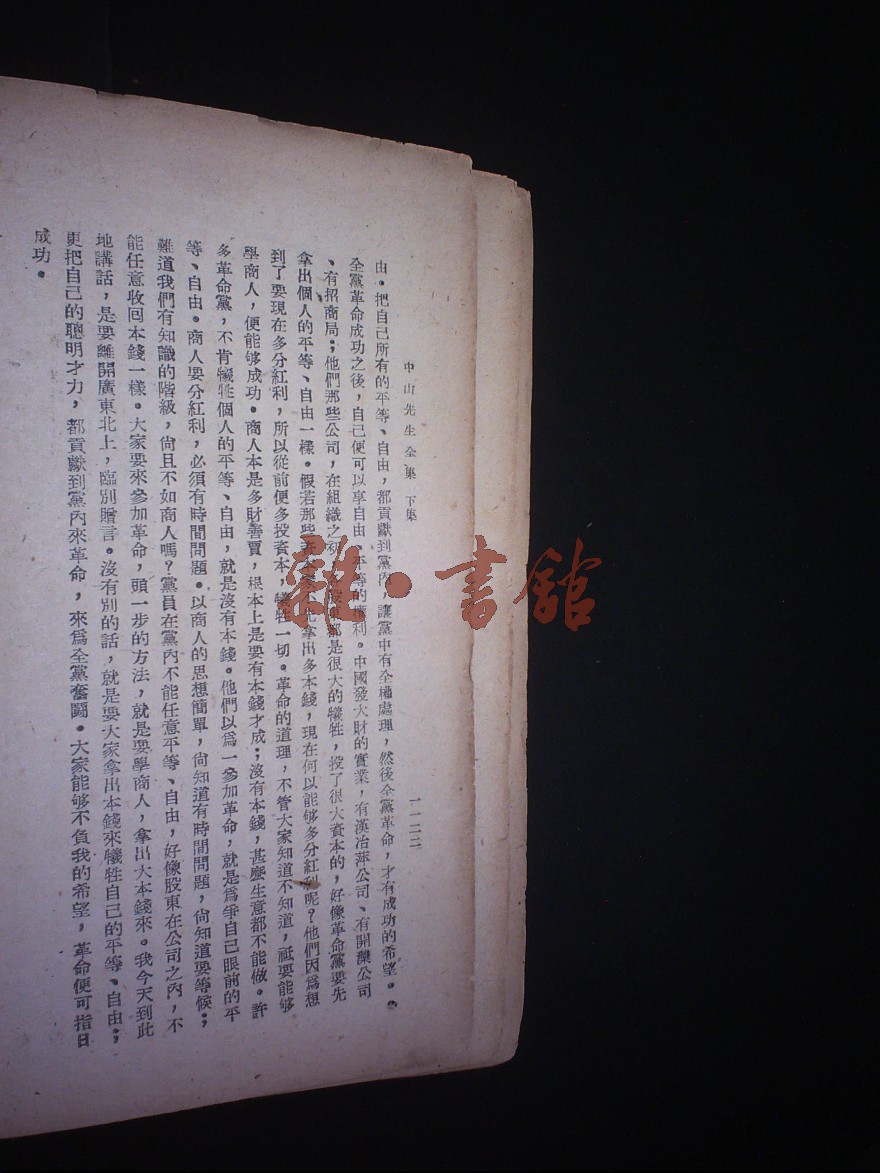 中山先生全集 下集
一一二二
由。把自己所有的平等、自由，都貢獻到黨內，讓黨中有全權處理，然後全黨革命，才有成功的希望。
全黨革命成功之後，自己便可以享自由、平等的權利。中國發大財的實業，有漢冶萍公司、有開灤公司
、有招商局；他們那些公司，在組織之初，都是很大的犧牲，投了很大資本的，好像革命黨要先
拿出個人的平等、自由一樣。假若那些拿出多本錢，現在何以能够多分紅利呢？他們因爲想
到了要現在多分紅利，所以從前便多投資本，犧牲一切。革命的道理，不管大家知道不知道，祗要能够
學商人，便能够成功。商人本是多財善賈，根本上是要有本錢才成；沒有本錢，甚麼生意都不能做。許
多革命黨，不肯犧牲個人的平等、自由，就是沒有本錢。他們以爲一參加革命，就是爲爭自己眼前的平
等、自由。商人要分紅利，必須有時間問題。以商人的思想簡單，尙知道有時間問題，尙知道要等候；
難道我們有知識的階級，尙且不如商人嗎？黨員在黨內不能任意平等、自由，好像股東在公司之內，不
能任意收回本錢一樣。大家要來參加革命，頭一步的方法，就是要學商人，拿出大本錢來。我今天到此
地講話，是要離開廣東北上，臨別贈言。沒有別的話，就是要大家拿出本錢來犧牲自己的平等、自由；
更把自己的聰明才力，都貢獻到黨內來革命，來爲全黨奮鬪。大家能够不負我的希望，革命便可指日
成功。
雜·書館